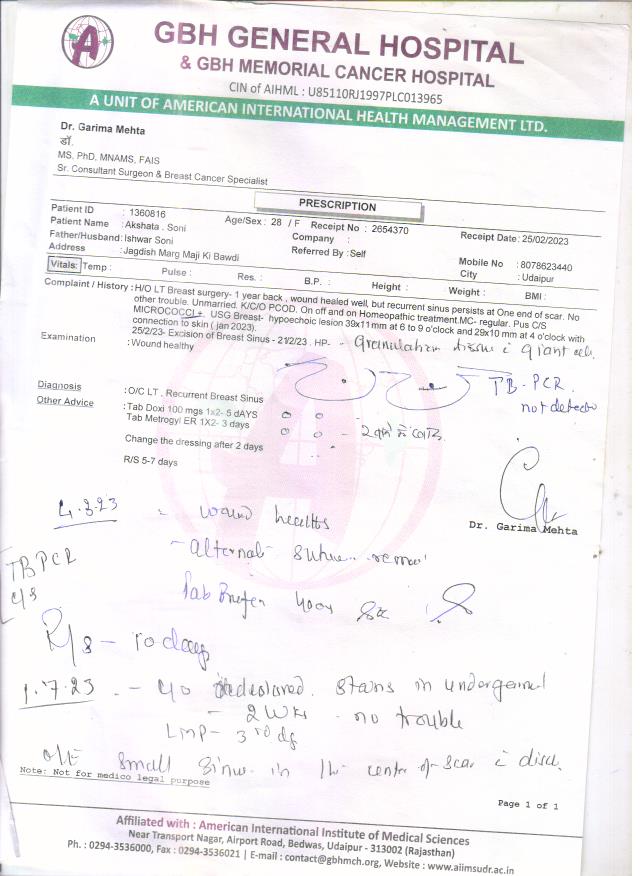 GBH GENERAL HOSPITAL
& GBH MEMORIAL CANCER HOSPITAL
CIN of AIHML : U85110RJ1997PLC013965
A UNIT OF AMERICAN INTERNATIONAL HEALTH MANAGEMENT LTD.
Dr. Garima Mehta
डॉ.
MS, PhD, MNAMS, FAIS
Sr. Consultant Surgeon & Breast Cancer Specialist
PRESCRIPTION
Patient ID : 1360816 Age/Sex : 28 / F Receipt No : 2654370 Receipt Date : 25/02/2023
Patient Name : Akshata . Soni Company :
Father/Husband : Ishwar Soni Referred By : Self Mobile No : 8078623440
Address : Jagdish Marg Maji Ki Bawdi City : Udaipur
Vitals: Temp : Pulse : Res. : B.P. : Height : Weight : BMI :
Complaint / History : H/O LT Breast surgery- 1 year back , wound healed well, but recurrent sinus persists at One end of scar. No
other trouble. Unmarried. K/C/O PCOD. On off and on Homeopathic treatment.MC- regular. Pus C/S
MICROCOCCI +. USG Breast- hypoechoic lesion 39x11 mm at 6 to 9 o'clock and 29x10 mm at 4 o'clock with
connection to skin ( jan 2023).
25/2/23- Excision of Breast Sinus - 21/2/23 . HP- - Granulation tissue c giant cell.
Examination : Wound healthy
TB-PCR
not detected
Diagnosis : O/C LT . Recurrent Breast Sinus
Other Advice : Tab Doxi 100 mgs 1x2- 5 dAYS
Tab Metrogyl ER 1X2- 3 days
Change the dressing after 2 days
R/S 5-7 days
Dr. Garima Mehta
4.3.23 - wound healthy
- alternal suture remov
TBPCR
c/s
Tab 400
R/s - 10 days
1.7.23 - c/o discolored stains in undergarment
- 2 wks - no trouble
LMP- 3rd
O/E small sinus in the center of scar c disch.
Note: Not for medico legal purpose
Page 1 of 1
Affiliated with : American International Institute of Medical Sciences
Near Transport Nagar, Airport Road, Bedwas, Udaipur - 313002 (Rajasthan)
Ph. : 0294-3536000, Fax : 0294-3536021 | E-mail : contact@gbhmch.org, Website : www.aiimsudr.ac.in